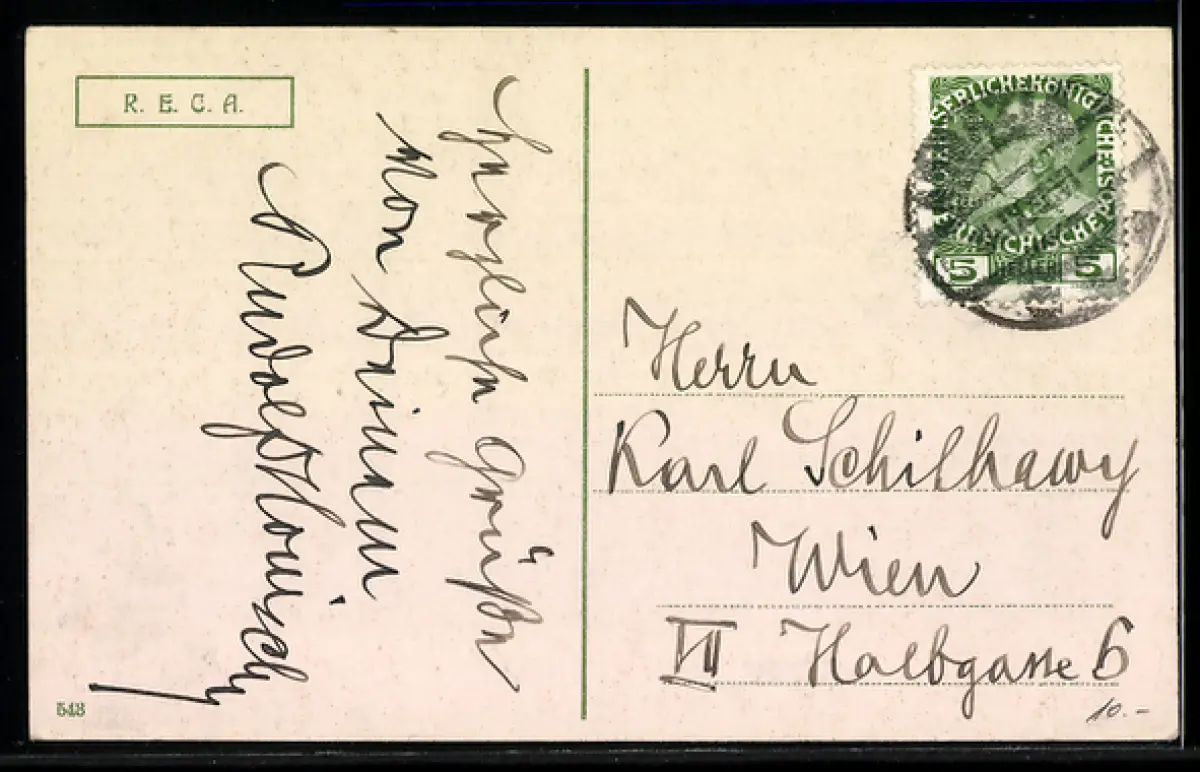 R. E. C. A.
Herzliche Grüße
von Deinem
Rudolf
KAISERLICHE KÖNIGLICHE ÖSTERREICHISCHE POST
5 HELLER 5
Herrn
Karl Schilhawy
Wien
VII Halbgasse 6
543
10.-